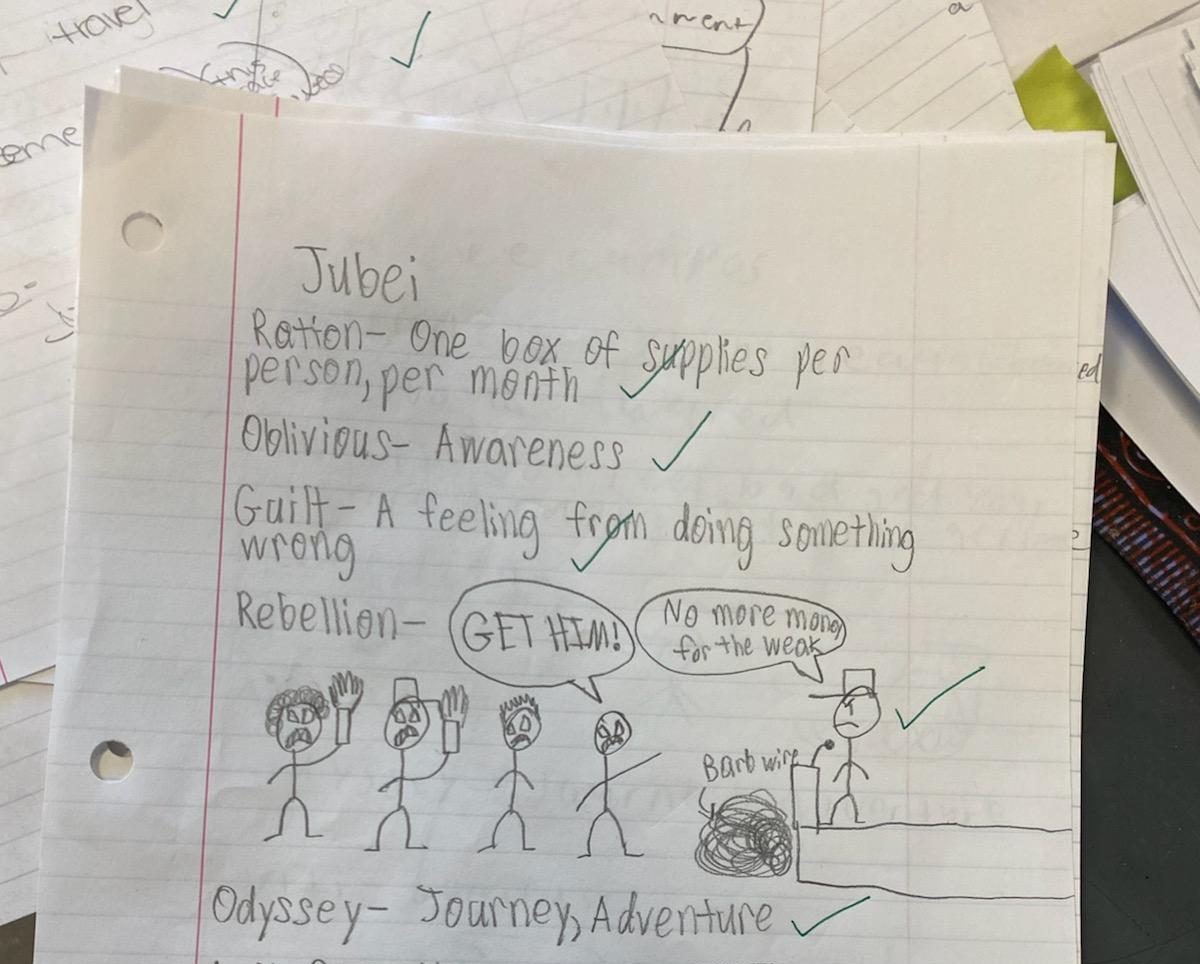 travel
nment
eme
ed
Jubei
Ration- One box of supplies per
person, per month
Oblivious- Awareness
Guilt- A feeling from doing something
wrong
Rebellion-
GET HIM!
No more mony
for the weak
Barb wire
Odyssey- Journey, Adventure